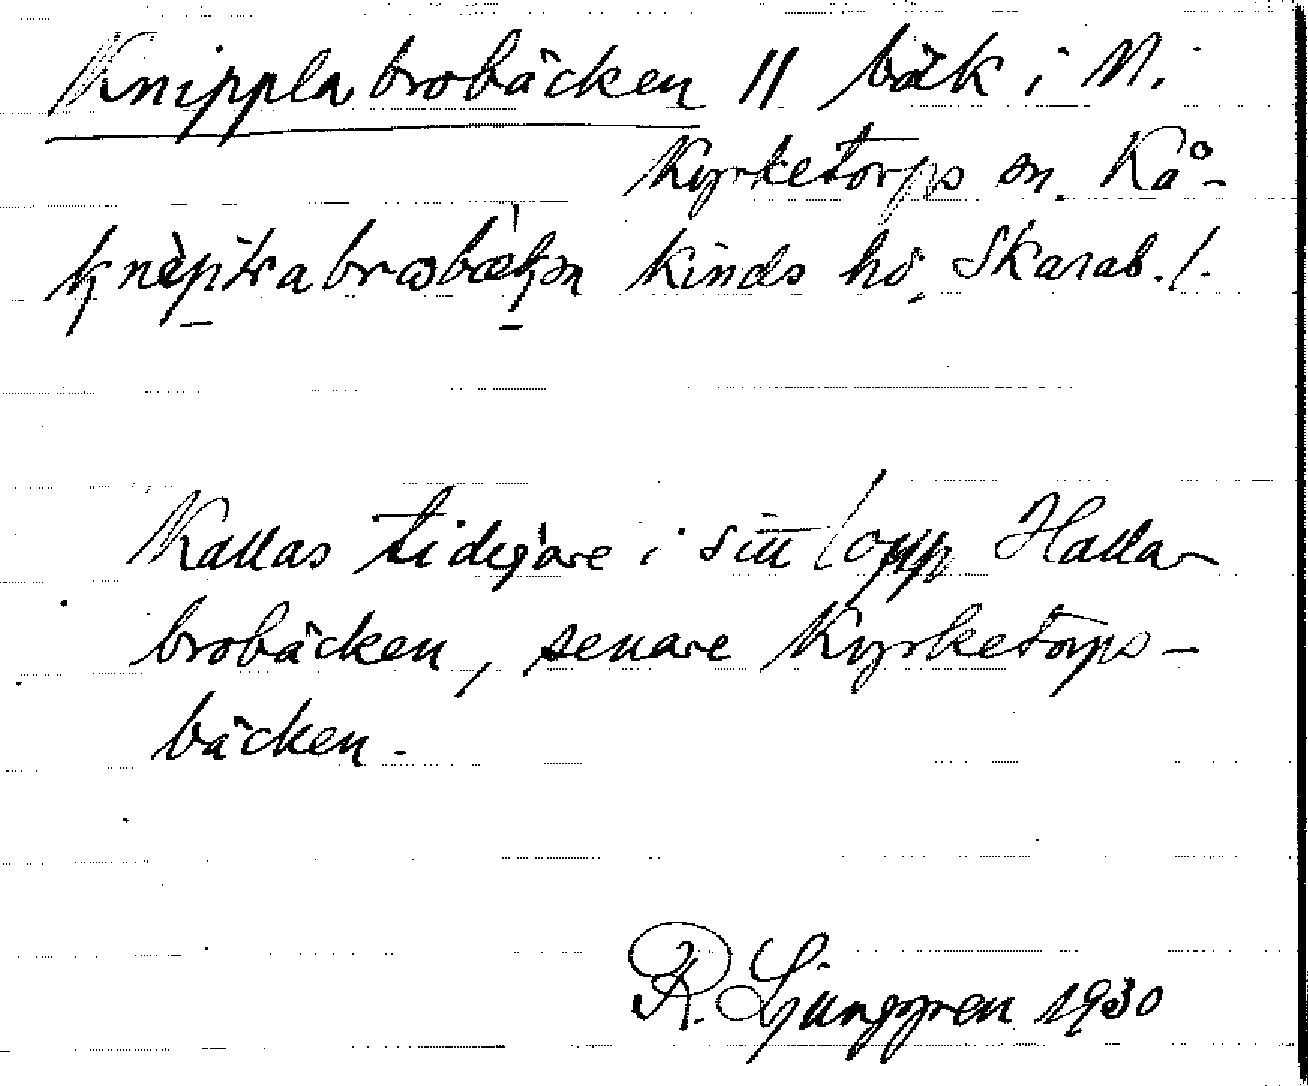 Knipplabrobäcken // bäk i N.
Kyrketorps sn. Kå-
kinds hd, Skarab. l.
Kallas tidigare i sitt lopp Halla-
brobäcken, senare Kyrketorps-
bäcken.
R. Ljunggren 1930